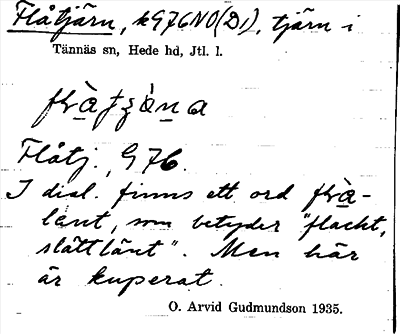 Flåtjärn, kG76NO(D1), tjärn i
Tännäs sn, Hede hd, Jtl. l.
Flåtj. G 76.
I dial. finns ett ord
länt, som betyder "flackt,
slättlänt". Men här
är kuperat.
O. Arvid Gudmundson 1935.